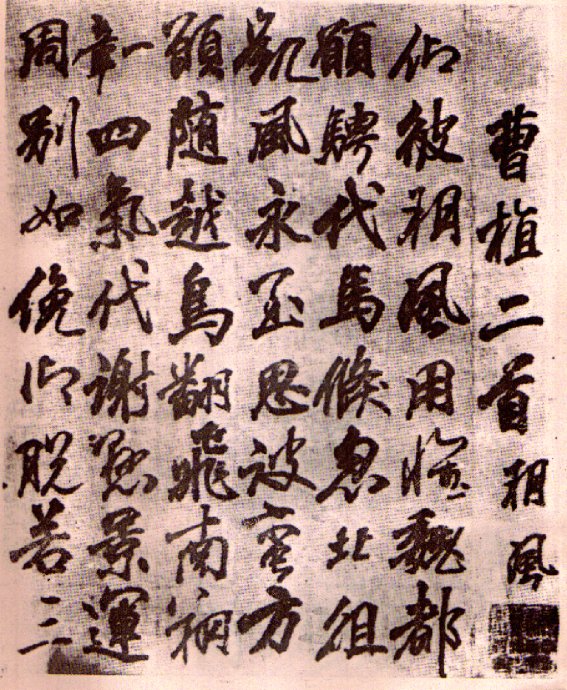 曹植二首 朔風
仰彼朔風用懷魏都
願騁代馬倏忽北徂
凱風永至思彼蛮方
願随越鳥翻飛南翔
一章四氣代謝懸景運
周別如俛仰脫若三